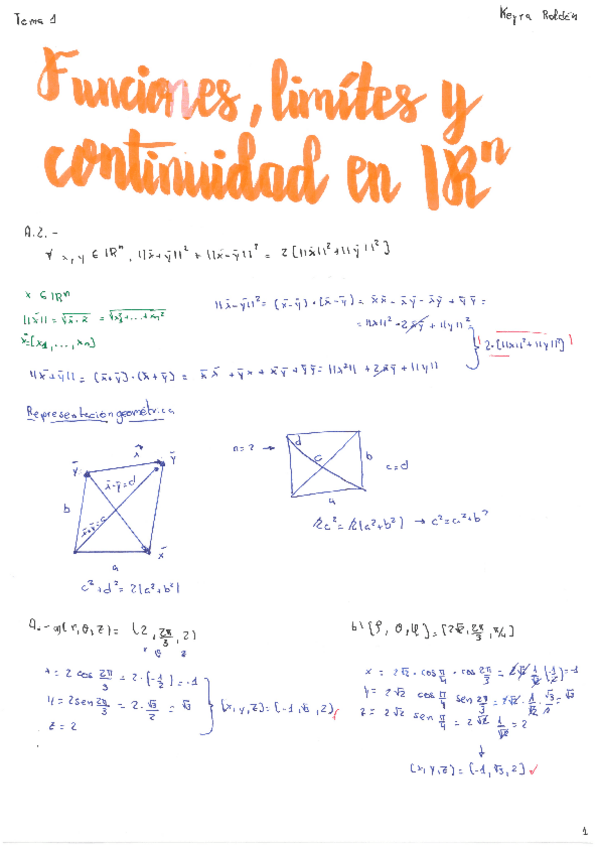 Tema 1
Keyra Roldán
Funciones, limítes y
continuidad en ℝⁿ
A.2.-
∀ x, y ∈ ℝⁿ, ||x̄+ȳ||² + ||x̄-ȳ||² = 2[||x̄||²+||ȳ||²]
x ∈ ℝⁿ
||x̄|| = √(x̄·x̄) = √(x₁²+...+xₙ²)
x̄=(x₁,...,xₙ)
||x̄-ȳ||² = (x̄-ȳ)·(x̄-ȳ) = x̄x̄ - x̄ȳ - x̄ȳ + ȳȳ =
= ||x||² - 2x̄ȳ + ||y||²
2·[||x||²+||y||²]
||x̄+ȳ|| = (x̄+ȳ)·(x̄+ȳ) = x̄x̄ + ȳx + x̄ȳ + ȳȳ = ||x²|| + 2x̄ȳ + ||y||
Representación geométrica
x̄
ȳ
ȳ
x̄-ȳ=d
x̄+ȳ=c
b
a
x̄
c²+d² = 2(a²+b²)
n=2 →
d
c
b
a
c=d
2c² = 2(a²+b²) → c²=a²+b²
A.- a) (r,θ,z) = (2, 2π/3, 2)
r θ z
x = 2 cos 2π/3 = 2·(-1/2) = -1
y = 2 sen 2π/3 = 2·√3/2 = √3
z = 2
(x,y,z) = (-1, √3, 2)
b) (ρ, θ, φ) = (2√2, 2π/3, π/4)
x = 2√2 · cos π/4 · cos 2π/3 = 2√2 · 1/√2 (-1/2) = -1
y = 2√2 cos π/4 sen 2π/3 = 2√2 · 1/√2 · √3/2 = √3
z = 2√2 sen π/4 = 2√2 1/√2 = 2
↓
(x,y,z) = (-1, √3, 2) ✓
1